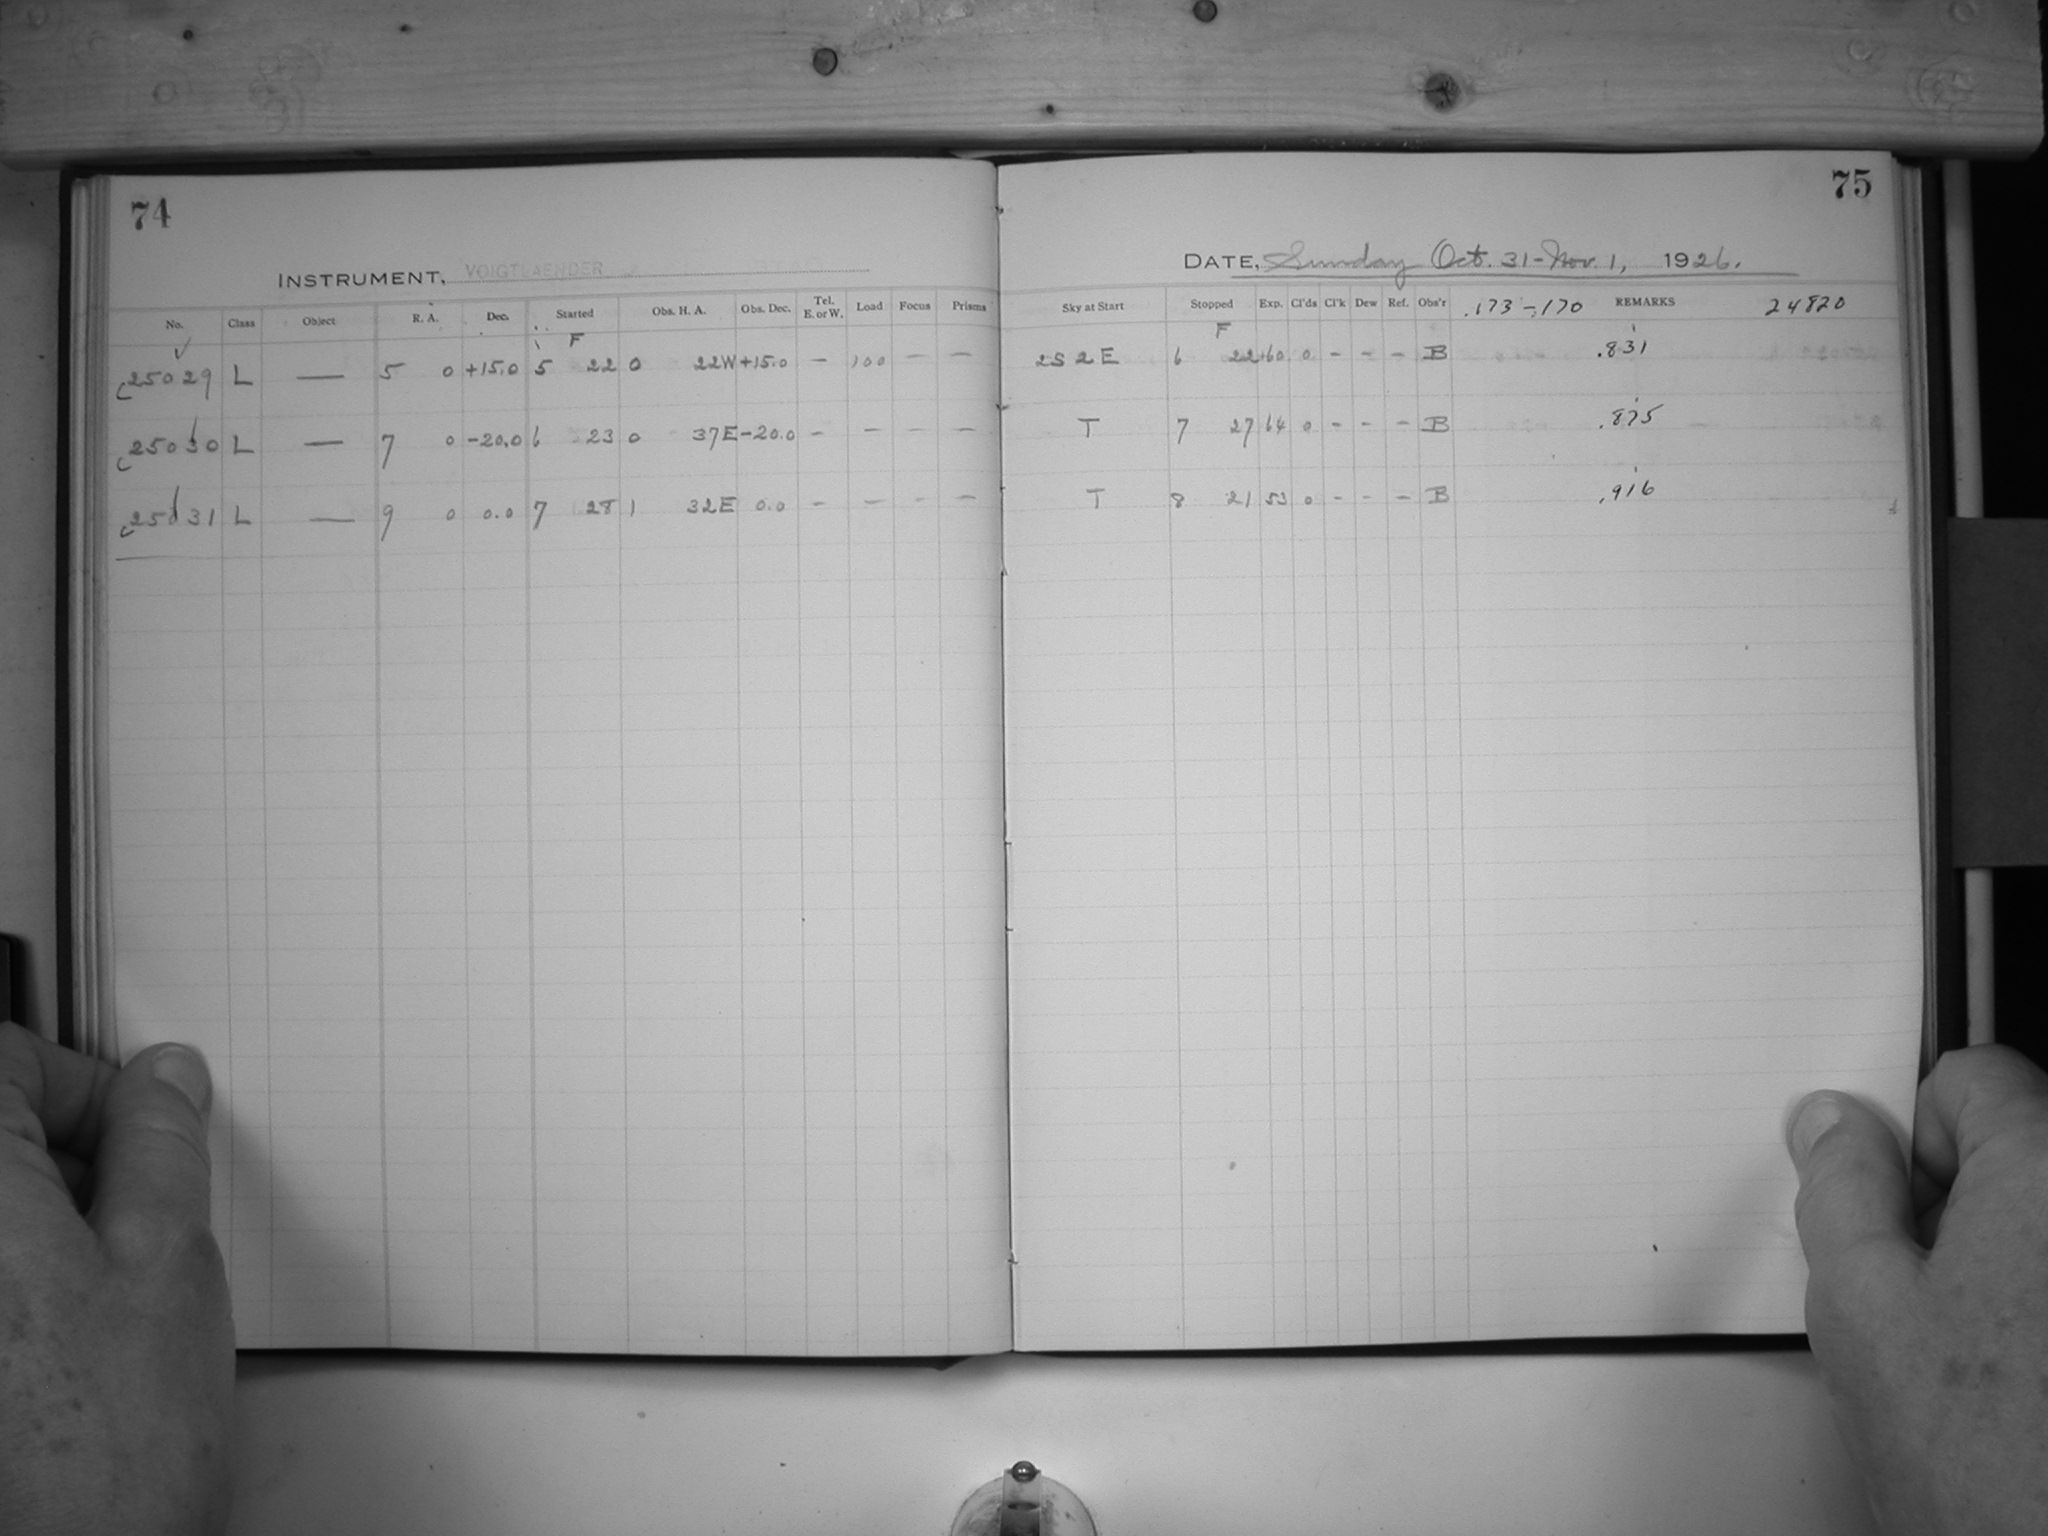 74
INSTRUMENT, VOIGTLAENDER
No. Class Object R. A. Dec. Started Obs. H. A. Obs. Dec. Tel. E. or W. Load Focus Prisms
F
c25029 L — 5 0 +15.0 5 22 0 22W +15.0 – 100 – –
c25030 L — 7 0 -20.0 6 23 0 37E -20.0 – – – –
c25031 L — 9 0 0.0 7 28 1 32E 0.0 – – – –
75
DATE, Sunday Oct. 31-Nov. 1, 1926.
Sky at Start Stopped Exp. Cl'ds Cl'k Dew Ref. Obs'r .173-.170 REMARKS 24820
F
2S 2E 6 22 60 0 - - - B .831
T 7 27 64 0 - - - B .875
T 8 21 53 0 - - - B .916